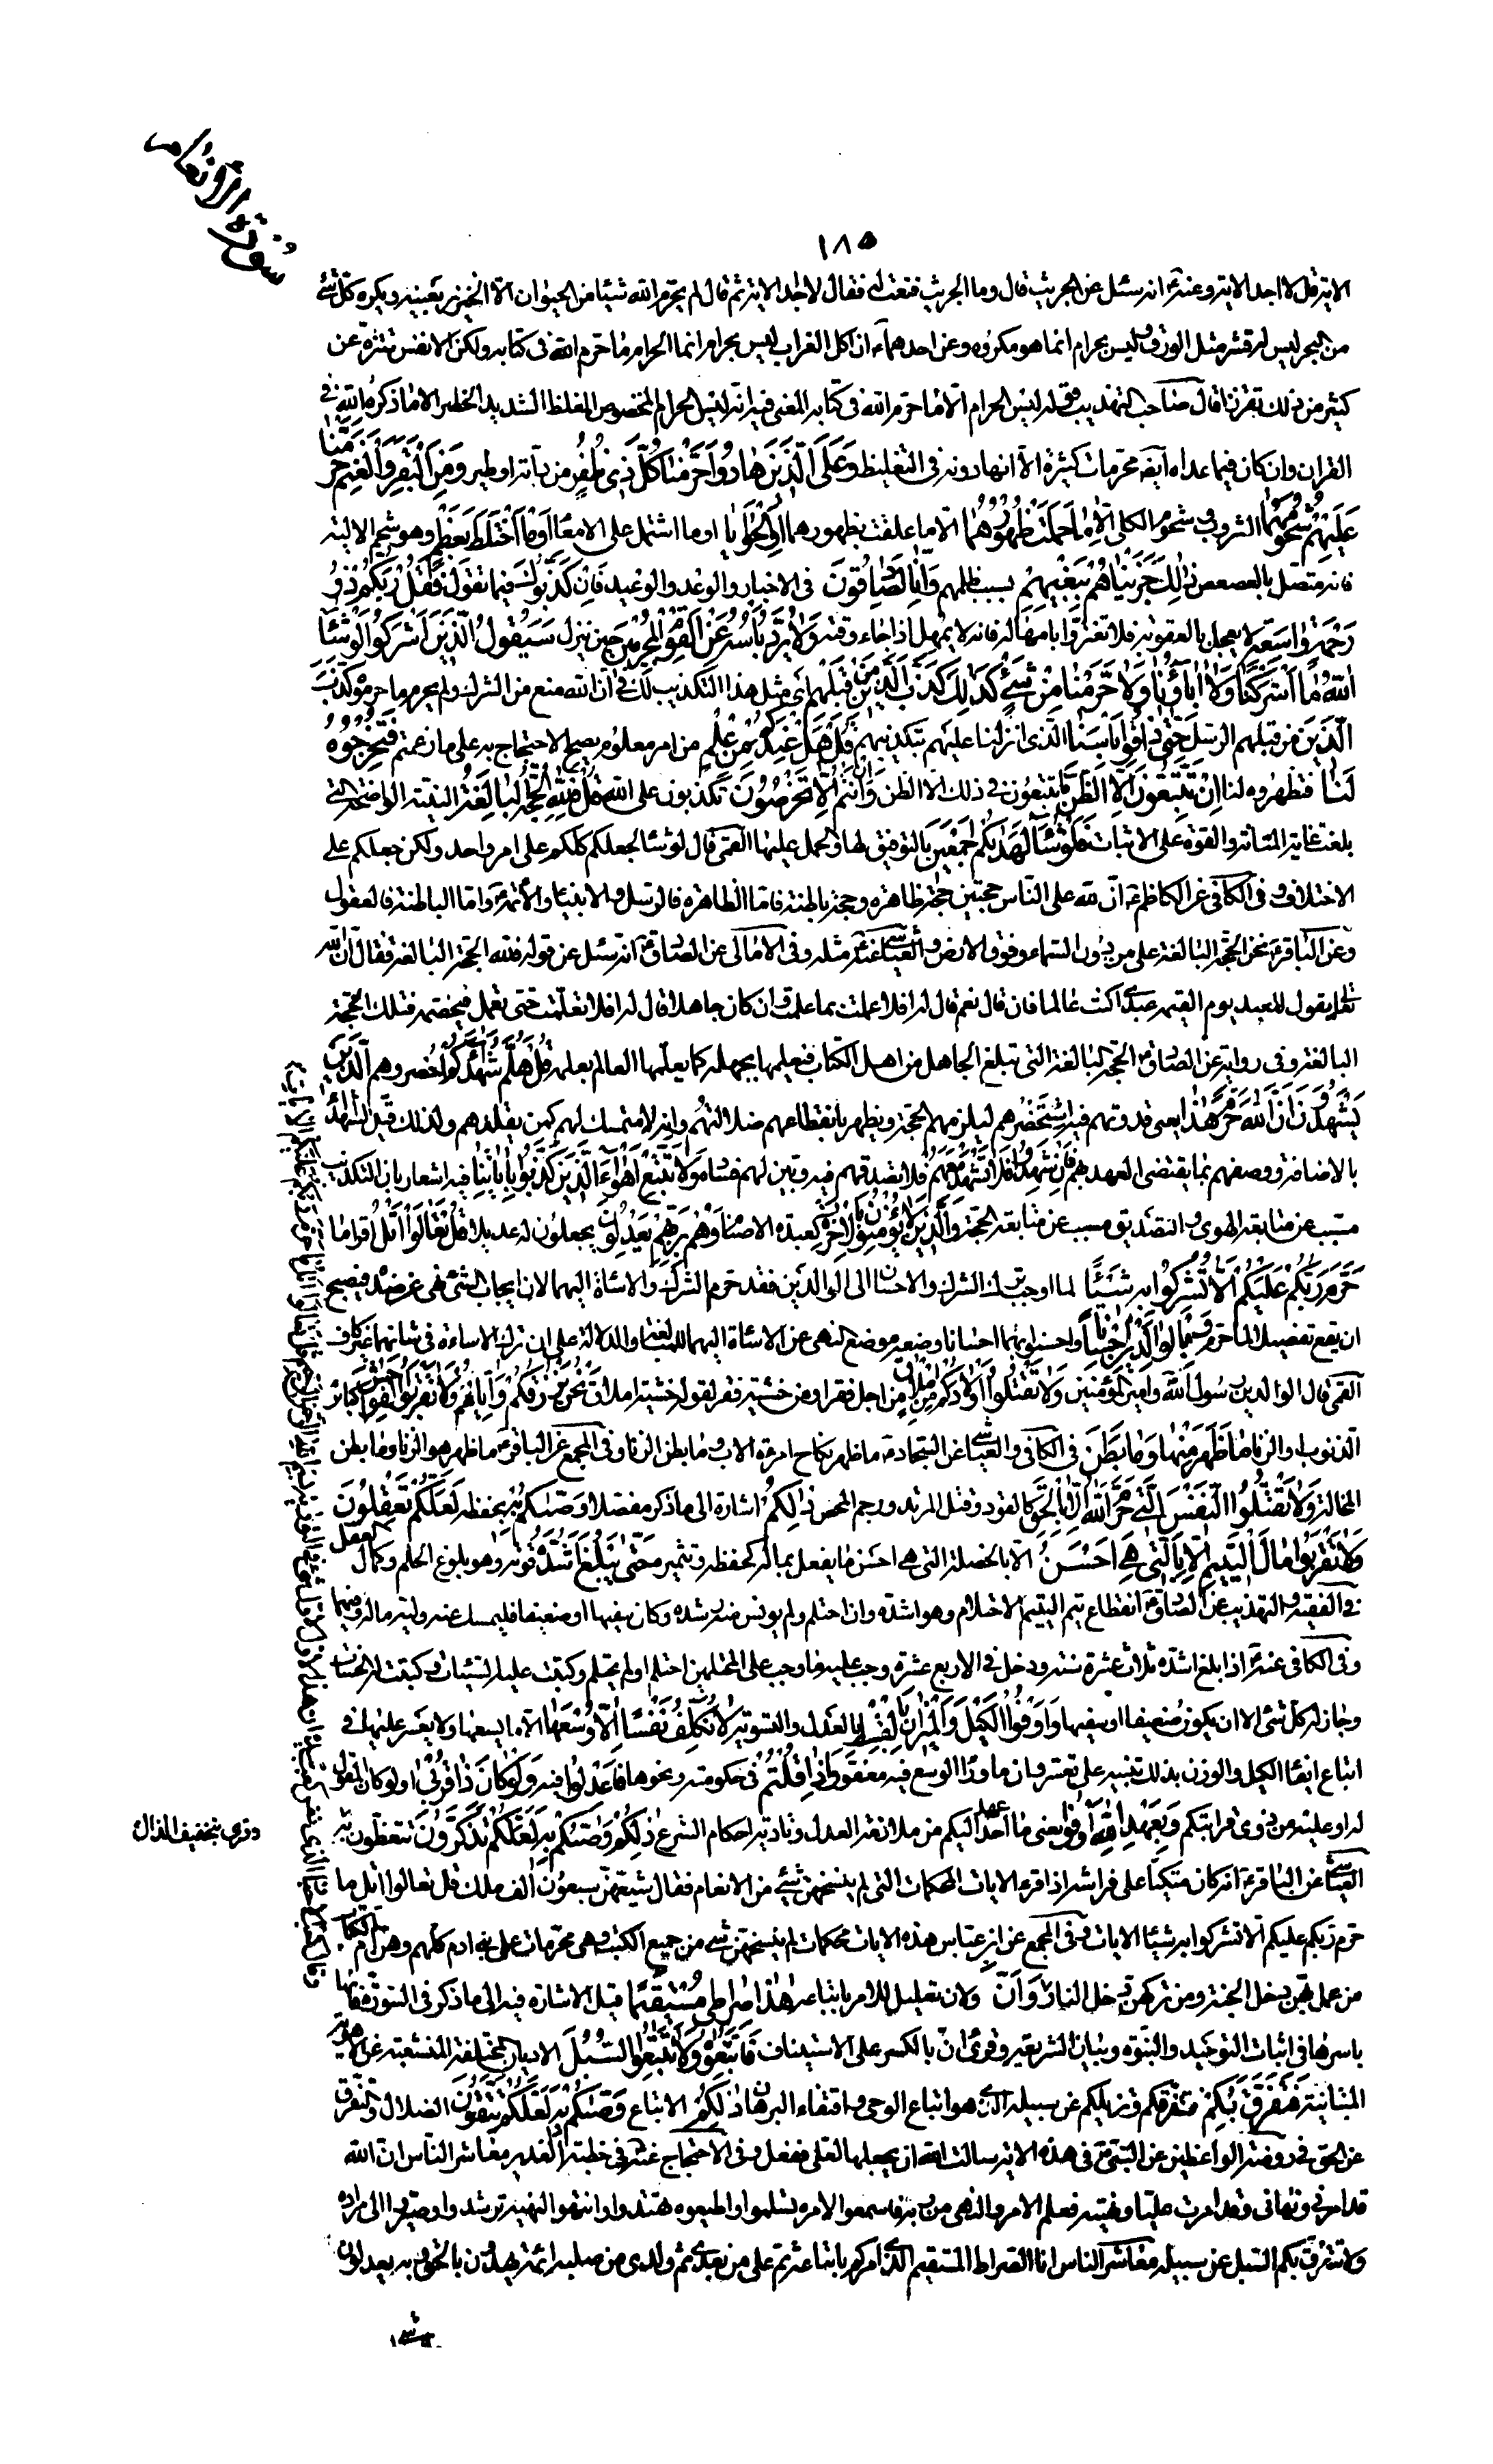 سورة الانعام
١٨٥
الاية قل لا اجد الاية وعنه ع انه سئل عن الجريث قال وما الجريث فنعت له فقال لا اجد الاية ثم قال لم يحرم الله شيئا من الحيوان الا الخنزير بعينه ويكره كل شئ
من البحر ليس له قشر مثل الورق وليس بحرام انما هو مكروه وعن احدهما ع ان اكل الغراب ليس بحرام انما الحرام ما حرم الله فى كتابه ولكن الانفس تتنزه عن
كثير من ذلك تقززا قال صاحب التهذيب قوله ليس الحرام الا ما حرم الله فى كتابه المعنى فيه انه ليس الحرام المخصوص المغلظ الشديد الخطر الا ما ذكره الله فى
القران وان كان فيما عداه ايضا محرمات كثيرة الا انها دونه فى التغليظ وَعَلَى الَّذينَ هادُوا حَرَّمْنا كُلَّ ذى ظُفُرٍ من دابة او طير وَمِنَ الْبَقَرِ وَالْغَنَمِ حَرَّمْنا
عَلَيْهِمْ شُحُومَهُما الثروب وشحوم الكلى اِلاّ ما حَمَلَتْ ظُهُورُهُما الا ما علقت بظهورهما اَوِ الْحَوايا او ما اشتمل على الامعاء اَوْ مَا اخْتَلَطَ بِعَظْمٍ وهو شحم الالية
فانه متصل بالعصعص ذلِكَ جَزَيْناهُمْ بِبَغْيِهِمْ بسبب ظلمهم وَاِنّا لَصادِقُونَ فى الاخبار والوعد والوعيد فَاِنْ كَذَّبُوكَ فيما تقول فَقُلْ رَبُّكُمْ ذُو
رَحْمَةٍ واسِعَةٍ لا يعجل بالعقوبة فلا تغتروا بامهاله فانه لا يمهل اذا جاء وقته وَلا يُرَدُّ بَأْسُهُ عَنِ الْقَوْمِ الْمُجْرِمينَ حين ينزل سَيَقُولُ الَّذينَ اَشْرَكُوا لَوْ شاءَ
اللهُ ما اَشْرَكْنا وَلا اباؤُنا وَلا حَرَّمْنا مِنْ شَئٍ كَذلِكَ كَذَّبَ الَّذينَ مِنْ قَبْلِهِمْ اى مثل هذا التكذيب لك فى ان الله منع من الشرك ولم يحرم ما حرموه كذب
الَّذينَ من قبلهم الرسل حَتّى ذاقُوا بَأْسَنا الذى انزلنا عليهم بتكذيبهم قُلْ هَلْ عِنْدَكُمْ مِنْ عِلْمٍ من امر معلوم يصح الاحتجاج به على ما زعمتم فَتُخْرِجُوهُ
لَنا فتظهروه لنا اِنْ تَتَّبِعُونَ اِلاَّ الظَّنَّ ما تتبعون فى ذلك الا الظن وَاِنْ اَنْتُمْ اِلاّ تَخْرُصُونَ تكذبون على الله قُلْ فَلِلّهِ الْحُجَّةُ الْبالِغَةُ البينة الواضحة التى
بلغت غاية المتانة والقوة على الاثبات فَلَوْ شاءَ لَهَديكُمْ اَجْمَعينَ بالتوفيق لها والحمل عليها القمى قال لو شاء لجعلكم كلكم على امر واحد ولكن جعلكم على
الاختلاف وفى الكافى عن الكاظم ع ان لله على الناس حجتين حجة ظاهرة وحجة باطنة فاما الظاهرة فالرسل والانبياء والائمة ع واما الباطنة فالعقول
وعن الباقر ع نحن الحجة البالغة على من دون السماء وفوق الارض والعياشى عنه ع مثله وفى الامالى عن الصادق ع انه سئل عن قوله فلله الحجة البالغة فقال ان الله
تعالى يقول للعبد يوم القيمة عبدى اكنت عالما فان قال نعم قال له افلا عملت بما علمت وان كان جاهلا قال له افلا تعلمت حتى تعمل فيخصمه فتلك الحجة
البالغة وفى رواية عن الصادق ع الحجة البالغة التى تبلغ الجاهل من اهل الكتاب فيعلمها بجهله كما يعلمها العالم بعلمه قُلْ هَلُمَّ شُهَداءَكُمُ احضروهم الَّذينَ
يَشْهَدُونَ اَنَّ اللهَ حَرَّمَ هذا يعنى قدوتهم فيه استحضرهم ليلزمهم الحجة ويظهر بانقطاعهم ضلالتهم وانه لا متمسك لهم كمن يقلدهم ولذلك قيد الشهداء
بالاضافة ووصفهم بما يقتضى العهد بهم فَاِنْ شَهِدُوا فَلا تَشْهَدْ مَعَهُمْ فلا تصدقهم فيه وبين لهم فساده وَلا تَتَّبِعْ اَهْواءَ الَّذينَ كَذَّبُوا بِاياتِنا فيه اشعار بان التكذيب
مسبب عن متابعة الهوى والتصديق مسبب عن متابعة الحجة وَالَّذينَ لا يُؤْمِنُونَ بِالْاخِرَةِ كعبدة الاصنام وَهُمْ بِرَبِّهِمْ يَعْدِلُونَ يجعلون له عديلا قُلْ تَعالَوْا اَتْلُ اقرا ما
حَرَّمَ رَبُّكُمْ عَلَيْكُمْ اَلاّ تُشْرِكُوا بِهِ شَيْئًا لما اوجب ترك الشرك والاحسان الى الوالدين فقد حرم الشرك والاساءة اليهما لان ايجاب الشئ نهى عن ضده فيصح
ان يقع تفصيلا لما حرم وَبِالْوالِدَيْنِ اِحْسانًا واحسنوا بهما احسانا وضعه موضع النهى عن الاساءة اليهما للمبالغة والدلالة على ان ترك الاساءة فى شانهما غير كاف
القمى قال الوالدين رسول الله وامير المؤمنين وَلا تَقْتُلُوا اَوْلادَكُمْ مِنْ اِمْلاقٍ من اجل فقر او من خشية فقر لقوله خشية املاق نَحْنُ نَرْزُقُكُمْ وَاِيّاهُمْ وَلا تَقْرَبُوا الْفَواحِشَ كبائر
الذنوب او الزنا ما ظَهَرَ مِنْها وَما بَطَنَ فى الكافى والعياشى عن السجاد ع ما ظهر نكاح امرءة الاب وما بطن الزنا وفى المجمع عن الباقر ع ما ظهر هو الزنا وما بطن
المخالة وَلا تَقْتُلُوا النَّفْسَ الَّتى حَرَّمَ اللهُ اِلاّ بِالْحَقِّ كالقود وقتل المرتد ورجم المحصن ذلِكُمْ اشارة الى ما ذكر مفصلا وَصّيكُمْ بِهِ بحفظه لَعَلَّكُمْ تَعْقِلُونَ
وَلا تَقْرَبُوا مالَ الْيَتيمِ اِلاّ بِالَّتى هِىَ اَحْسَنُ الا بالخصلة التى هى احسن ما يفعل بماله كحفظه وتثميره حَتّى يَبْلُغَ اَشُدَّهُ قوته وهو بلوغ الحلم وكمال العقل
فى الفقيه والتهذيب عن الصادق ع انقطاع يتم اليتيم الاحتلام وهو اشده وان احتلم ولم يونس منه رشده وكان سفيها او ضعيفا فليمسك عنه وليه ماله وفيهما
وفى الكافى عنه ع اذا بلغ اشده ثلاث عشرة سنة ودخل فى الاربع عشرة وجب عليه ما وجب على المحتلمين احتلم او لم يحتلم وكتبت عليه السيئات وكتبت له الحسنات
وجاز له كل شئ الا ان يكون ضعيفا او سفيها وَاَوْفُوا الْكَيْلَ وَالْميزانَ بِالْقِسْطِ بالعدل والتسوية لا نُكَلِّفُ نَفْسًا اِلاّ وُسْعَها الا ما يسعها ولا يعسر عليها فى
اتباع ايفاء الكيل والوزن بذلك تنبيه على تعسره وان ما وراء الوسع فيه معفو وَاِذا قُلْتُمْ فى حكومة ونحوها فَاعْدِلُوا فيه وَلَوْ كانَ ذا قُرْبى ولو كان المقول
له او عليه من ذوى قرابتكم وَبِعَهْدِ اللهِ اَوْفُوا يعنى ما عهد اليكم من ملازمة العدل وتادية احكام الشرع ذلِكُمْ وَصّيكُمْ بِهِ لَعَلَّكُمْ تَذَكَّرُونَ تتعظون به
وقرى بتخفيف الذال
العياشى عن الباقر ع انه كان متكئا على فراشه اذ قرء الايات المحكمات التى لم ينسخهن شئ من الانعام فقال شيعهن سبعون الف ملك قل تعالوا اتل ما
حرم ربكم عليكم الا تشركوا به شيئا الايات وفى المجمع عن ابن عباس هذه الايات محكمات لم ينسخهن شئ من جميع الكتب وهى محرمات على بنى ادم كلهم وهن ام الكتاب
من عمل بهن دخل الجنة ومن تركهن دخل النار وَاَنَّ ولان تعليل للامر باتباعه هذا صِراطى مُسْتَقيمًا قيل الاشارة فيه الى ما ذكر فى السورة فانها
باسرها فى اثبات التوحيد والنبوة وبيان الشريعة وقرئ ان بالكسر على الاستيناف فَاتَّبِعُوهُ وَلا تَتَّبِعُوا السُّبُلَ الاديان المختلفة المنشعبة عن الاهوية
المتباينة فَتَفَرَّقَ بِكُمْ فتفرقكم وتزيلكم عَنْ سَبيلِه الذى هو اتباع الوحى واقتفاء البرهان ذلِكُمْ الاتباع وَصّيكُمْ بِهِ لَعَلَّكُمْ تَتَّقُونَ الضلال والتفرق
عن الحق فى روضة الواعظين عن النبى ص فى هذه الاية سالت الله ان يجعلها لعلى ففعل وفى الاحتجاج عنه ص فى خطبة الغدير معاشر الناس ان الله
قد امرنى ونهانى وقد امرت عليا ونهيته فعلم الامر والنهى من ربه فاسمعوا لامره تسلموا واطيعوه تهتدوا وانتهوا لنهيه ترشدوا وصيروا الى مراده
ولا تتفرق بكم السبل عن سبيله معاشر الناس انا الصراط المستقيم الذى امركم باتباعه ثم على من بعدى ثم ولدى من صلبه ائمة يهدون بالحق وبه يعدلون